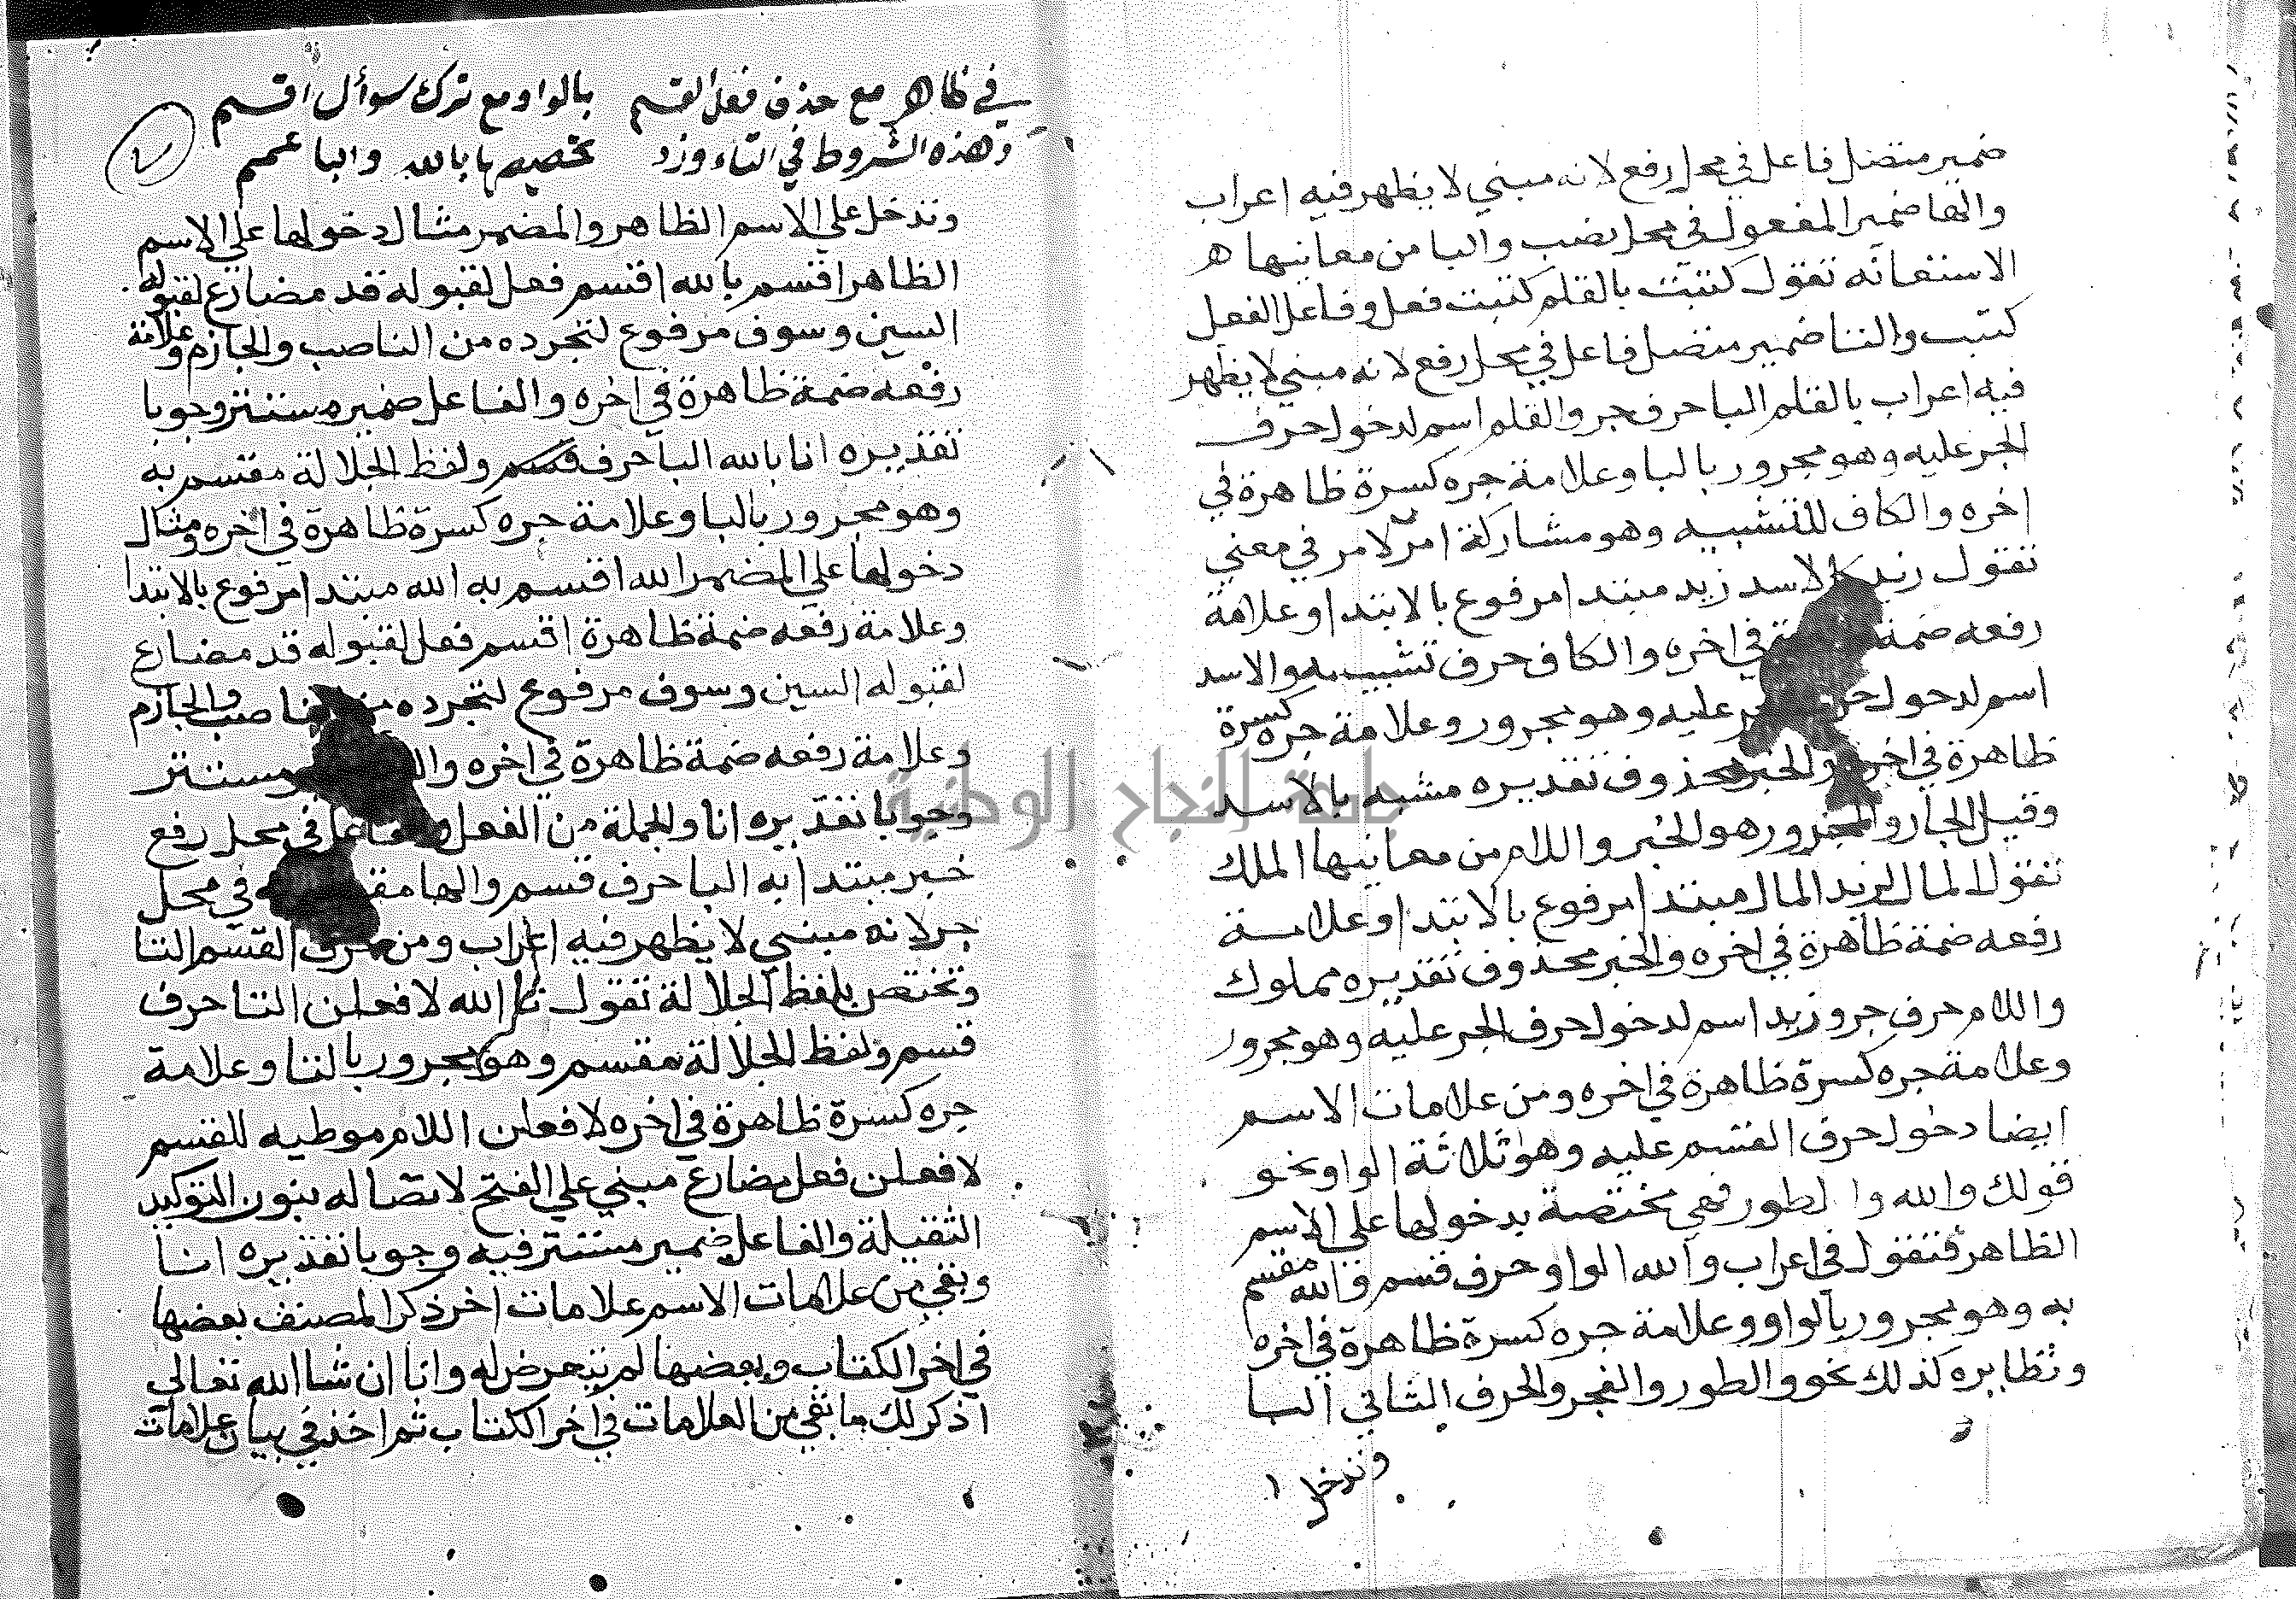 ضمير متصل فاعل في محل رفع لانه مبني لا يظهر فيه اعراب
والها ضمير المفعول في محل نصب والبا من معانيها ه
الاستعانه تقول كتبت بالقلم كتبت فعل وفاعل الفعل
كتب والتا ضمير متصل فاعل في محل رفع لانه مبني لا يظهر
فيه اعراب بالقلم البا حرف جر والقلم اسم لدخول حرف
الجر عليه وهو مجرور بالبا وعلامة جره كسرة ظاهرة في
اخره والكاف للتشبيه وهو مشاركة امر لامر في معني
تقول زيد كالاسد زيد مبتدا مرفوع بالابتدا وعلامة
رفعه ضمة في اخره والكاف حرف تشبيه والاسد
اسم لدخول عليه وهو مجرور وعلامة جره كسرة
ظاهرة في والخبر محذوف تقديره مشبه بالاسد
وقيل الجار والمجرور هو الخبر واللام من معانيها الملك
تقول المال لزيد المال مبتدا مرفوع بالابتدا وعلامة
رفعه ضمة ظاهرة في اخره والخبر محذوف تقديره مملوك
واللام حرف جر وزيد اسم لدخول حرف الجر عليه وهو مجرور
وعلامة جره كسرة ظاهرة في اخره ومن علامات الاسم
ايضا دخول حرف القسم عليه وهو ثلاثة الواو نحو
قولك والله والطور فهي مختصة بدخولها علي الاسم
الظاهر فتقول في اعراب والله الواو حرف قسم والله مقسم
به وهو مجرور بالواو وعلامة جره كسرة ظاهرة في اخره
ونظايره كذلك نحو والطور والفجر والحرف الثاني البا
وتدخل
في ظاهر مع حذف فعل القسم بالواو مع ترك سوأل اقسم
وهذه الشروط في التاء وزد تخصيصها بالله والبا عمم
وتدخل علي الاسم الظاهر والمضمر مثال دخولها علي الاسم
الظاهر اقسم بالله اقسم فعل لقبوله قد مضارع لقبوله
السين وسوف مرفوع لتجرده من الناصب والجازم وعلامة
رفعه ضمة ظاهرة في اخره والفاعل ضمير مستتر وجوبا
تقديره انا بالله البا حرف قسم ولفظ الجلالة مقسم به
وهو مجرور بالبا وعلامة جره كسرة ظاهرة في اخره ومثال
دخولها علي المضمر الله اقسم به الله مبتدا مرفوع بالابتدا
وعلامة رفعه ضمة ظاهرة اقسم فعل لقبوله قد مضارع
لقبوله السين وسوف مرفوع لتجرده والجازم
وعلامة رفعه ضمة ظاهرة في اخره مستتر
وجوبا تقديره انا والجملة من الفعل في محل رفع
خبر مبتدا به البا حرف قسم والها في محل
جر لانه مبني لا يظهر فيه اعراب ومن حرف القسم التا
وتختص بلفظ الجلالة تقول تالله لافعلن التا حرف
قسم ولفظ الجلالة مقسم وهو مجرور بالتا وعلامة
جره كسرة ظاهرة في اخره لافعلن اللام موطيه للقسم
لافعلن فعل مضارع مبني علي الفتح لاتصاله بنون التوكيد
الثقيلة والفاعل ضمير مستتر فيه وجوبا تقديره انا
وبقي من علامات الاسم علامات اخر ذكر المصنف بعضها
في اخر الكتاب وبعضها لم يتعرض له وانا ان شا الله تعالي
اذكر لك ما بقي من العلامات في اخر الكتاب ثم اخذ في بيان علامات
جامعة النجاح الوطنية